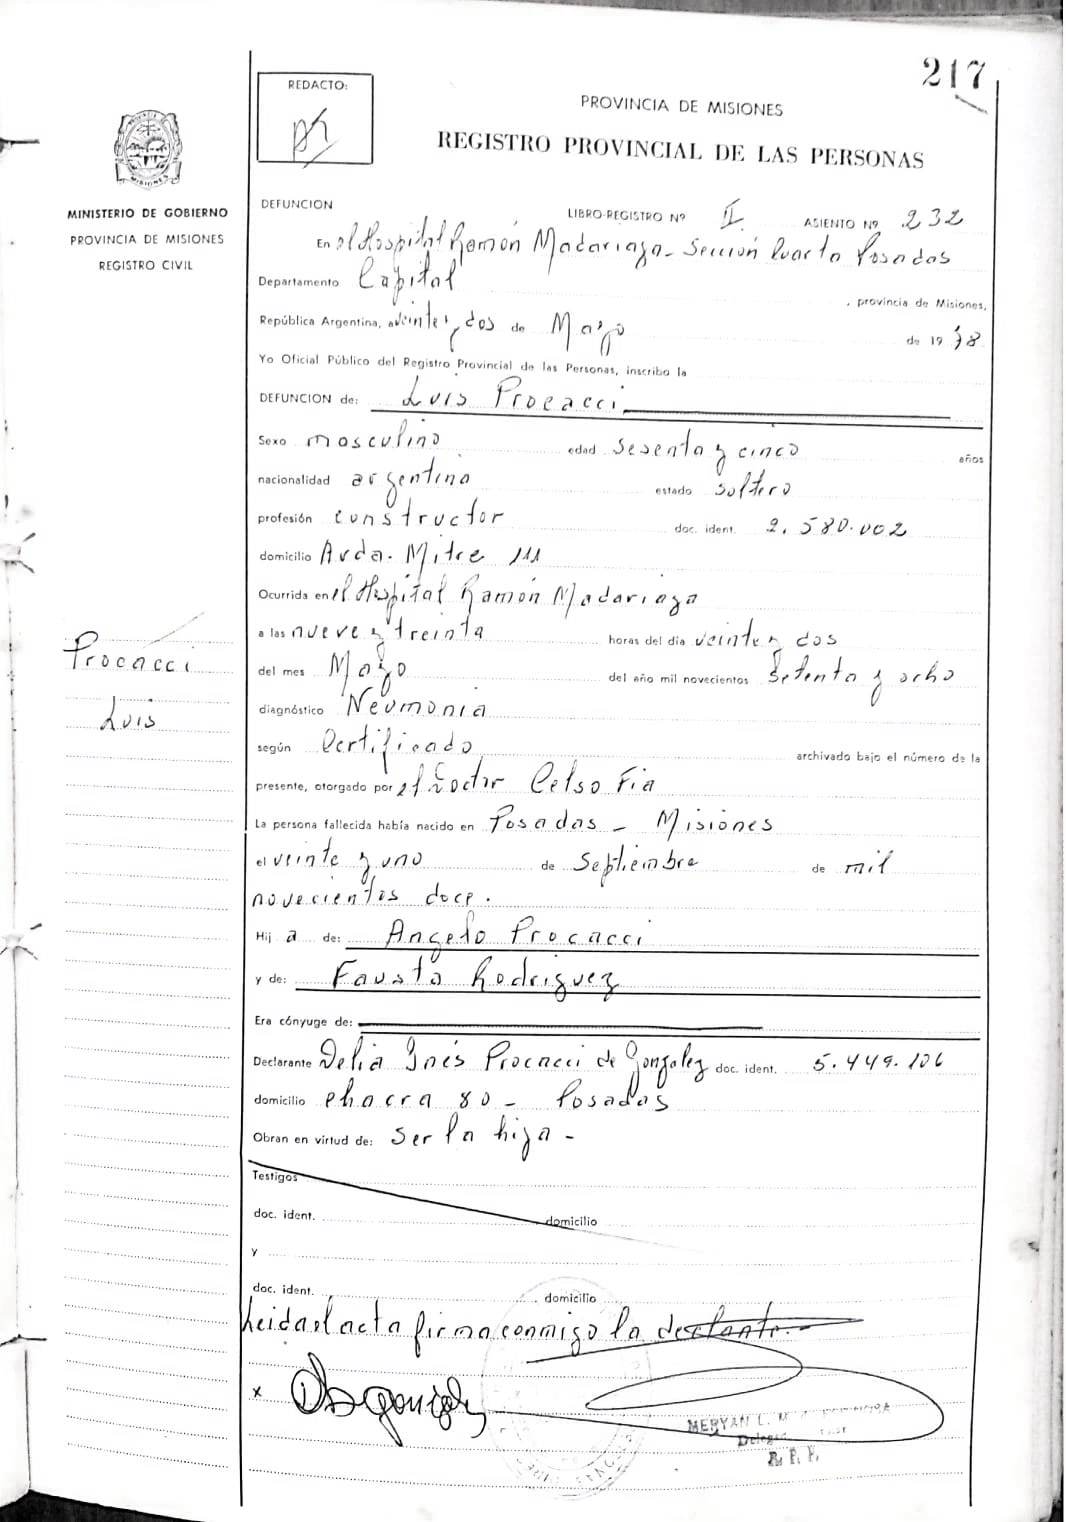 217
REDACTO:
PROVINCIA DE MISIONES
REGISTRO PROVINCIAL DE LAS PERSONAS
MINISTERIO DE GOBIERNO
PROVINCIA DE MISIONES
REGISTRO CIVIL
DEFUNCION LIBRO-REGISTRO Nº II ASIENTO Nº 232
En el Hospital Ramón Madariaga - Sección Cuarta Posadas
Departamento Capital , provincia de Misiones,
República Argentina, a veinte y dos de Mayo de 19 78
Yo Oficial Público del Registro Provincial de las Personas, inscribo la
DEFUNCION de: Luis Procacci
Sexo masculino edad sesenta y cinco años
nacionalidad argentina estado soltero
profesión constructor doc. ident. 2.580.002
domicilio Avda. Mitre 111
Ocurrida en el Hospital Ramón Madariaga
a las nueve y treinta horas del día veinte y dos
Procacci
Luis
del mes Mayo del año mil novecientos setenta y ocho
diagnóstico Neumonia
según Certificado archivado bajo el número de la
presente, otorgado por el Doctor Celso Fia
La persona fallecida había nacido en Posadas - Misiones
el veinte y uno de Septiembre de mil
novecientos doce.
Hij a de: Angelo Procacci
y de: Fausta Rodriguez
Era cónyuge de:
Declarante Delia Inés Procacci de Gonzalez doc. ident. 5.449.106
domicilio chacra 80 - Posadas
Obran en virtud de: ser la hija -
Testigos
doc. ident. domicilio
y
doc. ident. domicilio
Leida el acta firma conmigo la
x
MERYAN L.
R. P. P.